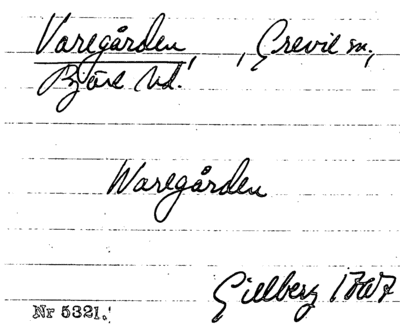 Varegården, , Grevie sn,
Bjäre hd.
Waregården
Gillberg 1767
Nr 5321.